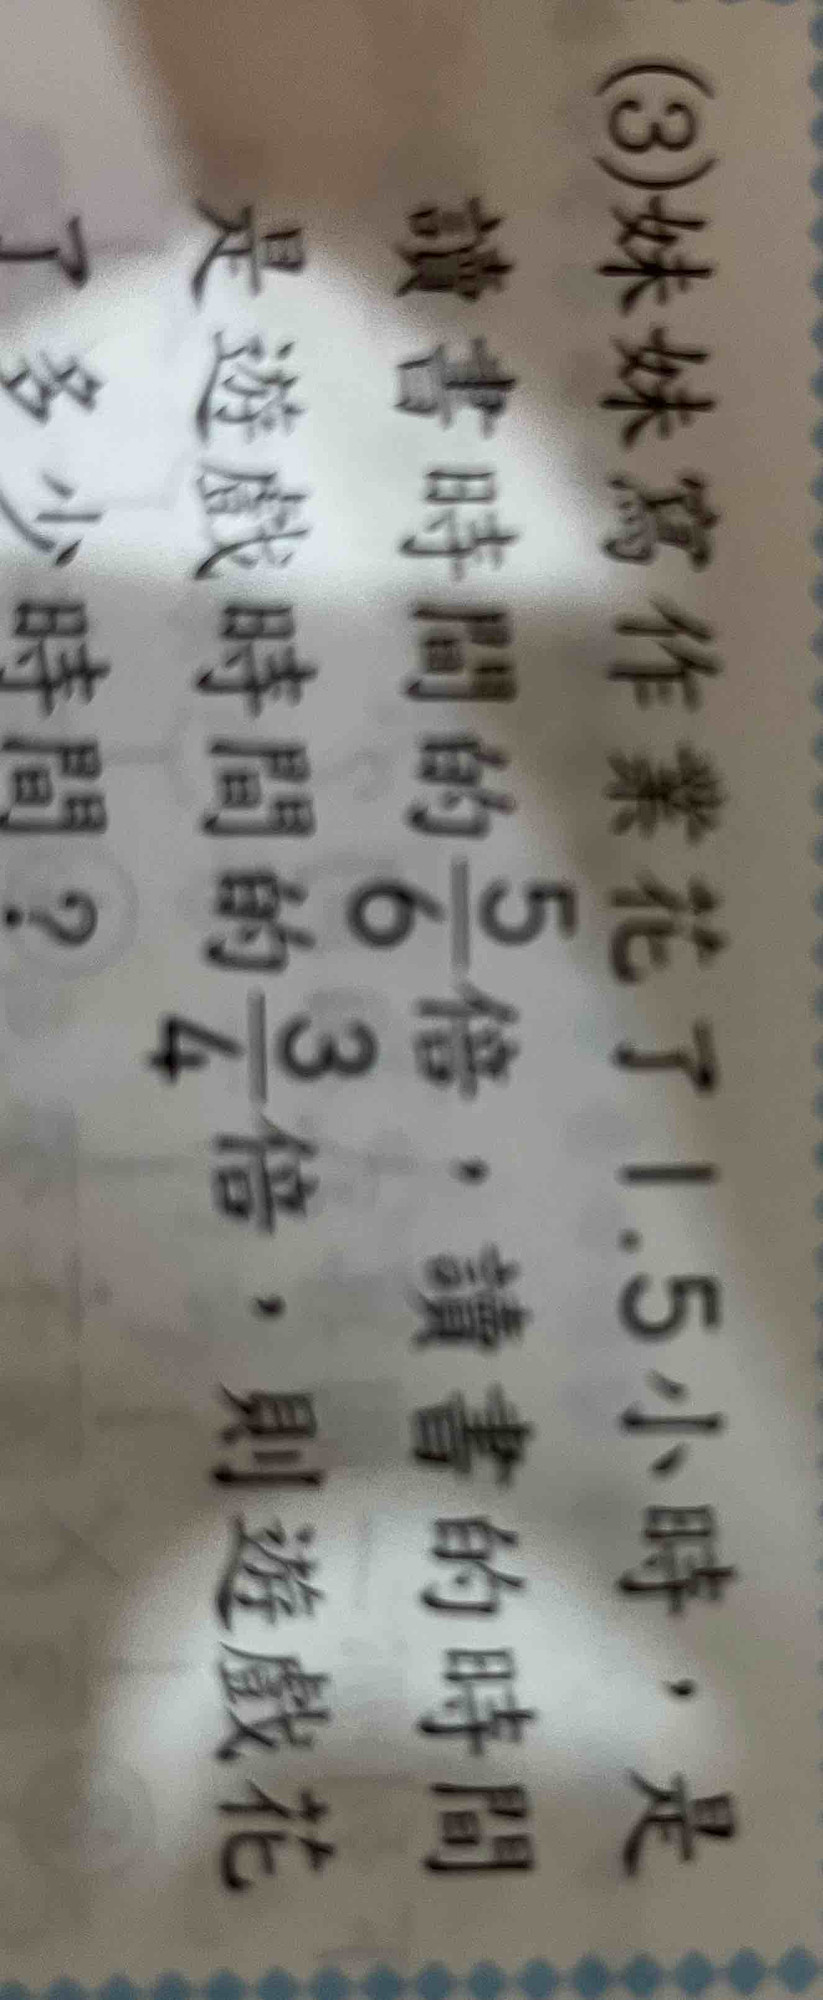 (3)妹妹寫作業花了1.5小時，是
讀書時間的5/6倍，讀書的時間
是遊戲時間的3/4倍，則遊戲花
了多少時間？